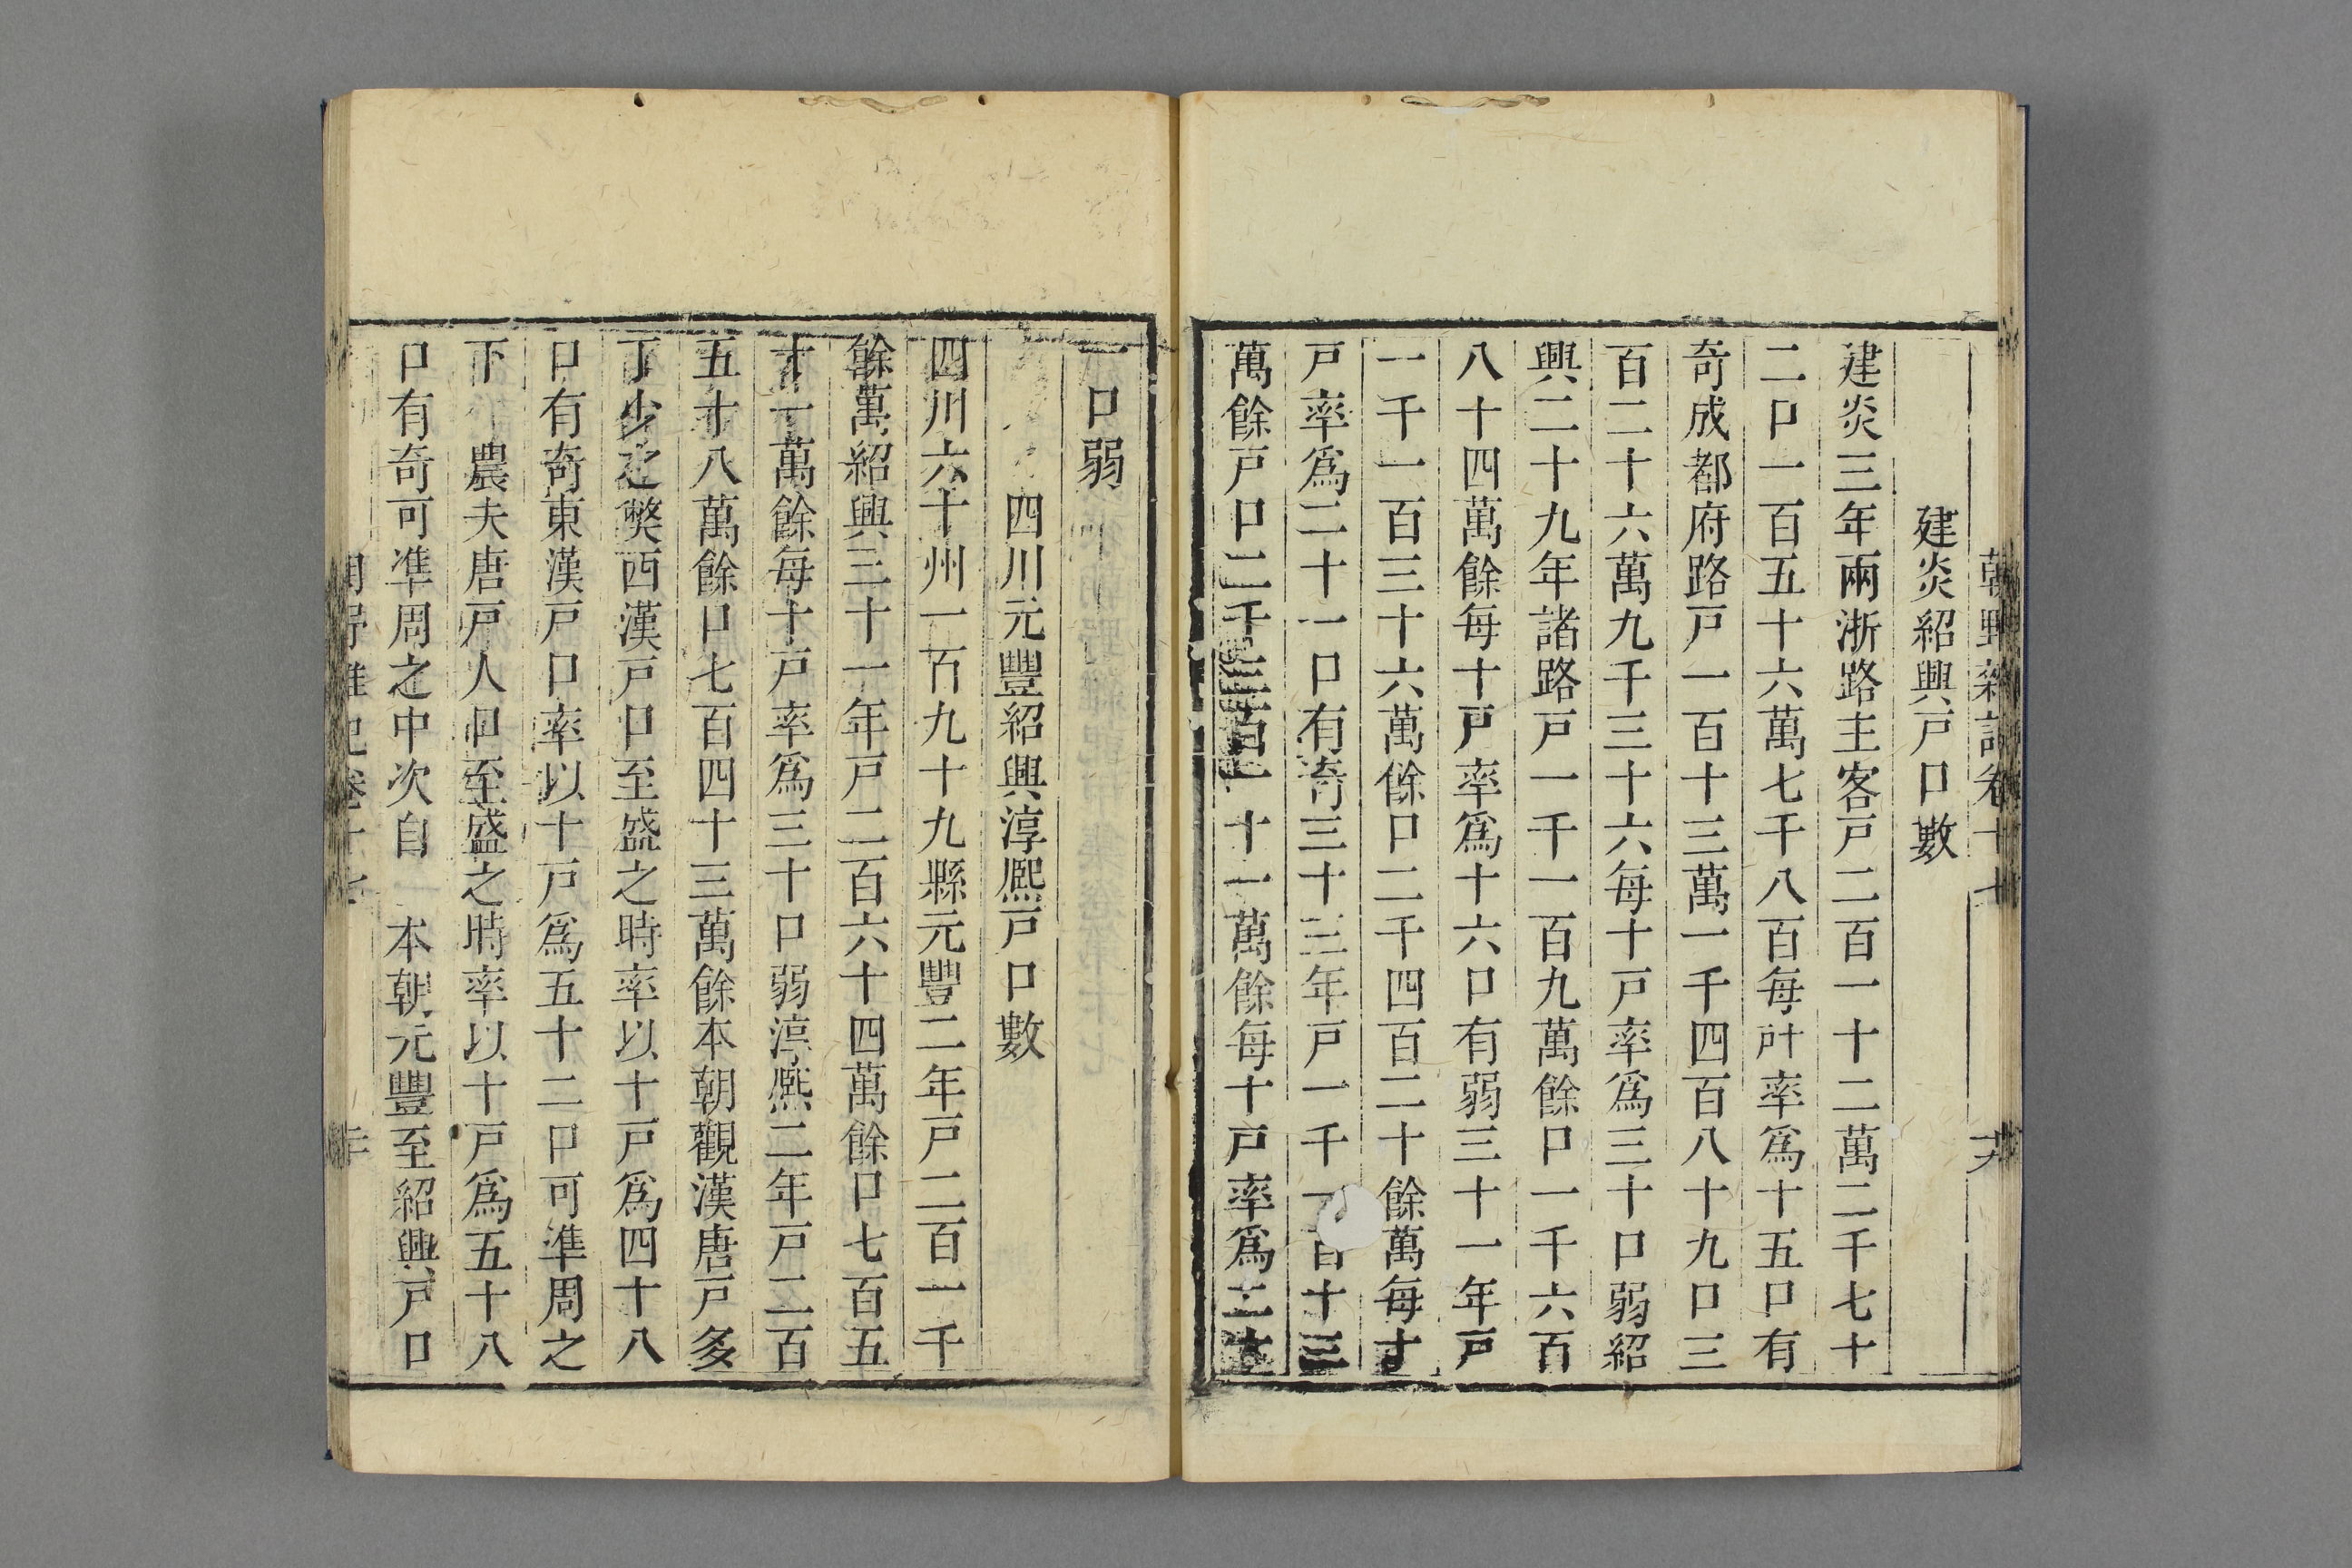 朝野雜記卷十七
建炎紹興戸口數
建炎三年兩浙路主客戸二百一十二萬二千七十
二口一百五十六萬七千八百每計率爲十五口有
奇成都府路戸一百十三萬一千四百八十九口三
百二十六萬九千三十六每十戸率爲三十口弱紹
興二十九年諸路戸一千一百九萬餘口一千六百
八十四萬餘每十戸率爲十六口有弱三十一年戸
一千一百三十六萬餘口二千四百二十餘萬每十
戸率爲二十一口有奇三十三年戸一千一百十三
萬餘戸口二千三百一十一萬餘每十戸率爲二十
一口弱
四川元豐紹興淳熈戸口數
四川六十州一百九十九縣元豐二年戸二百一千
餘萬紹興三十一年戸二百六十四萬餘口七百五
十一萬餘每十戸率爲三十口弱淳熈二年戸二百
五十八萬餘口七百四十三萬餘本朝觀漢唐戸多
丁少之獘西漢戸口至盛之時率以十戸爲四十八
口有奇東漢戸口率以十戸爲五十二口可準周之
下農夫唐戸人口至盛之時率以十戸爲五十八
口有奇可準周之中次自一本朝元豐至紹興戸口